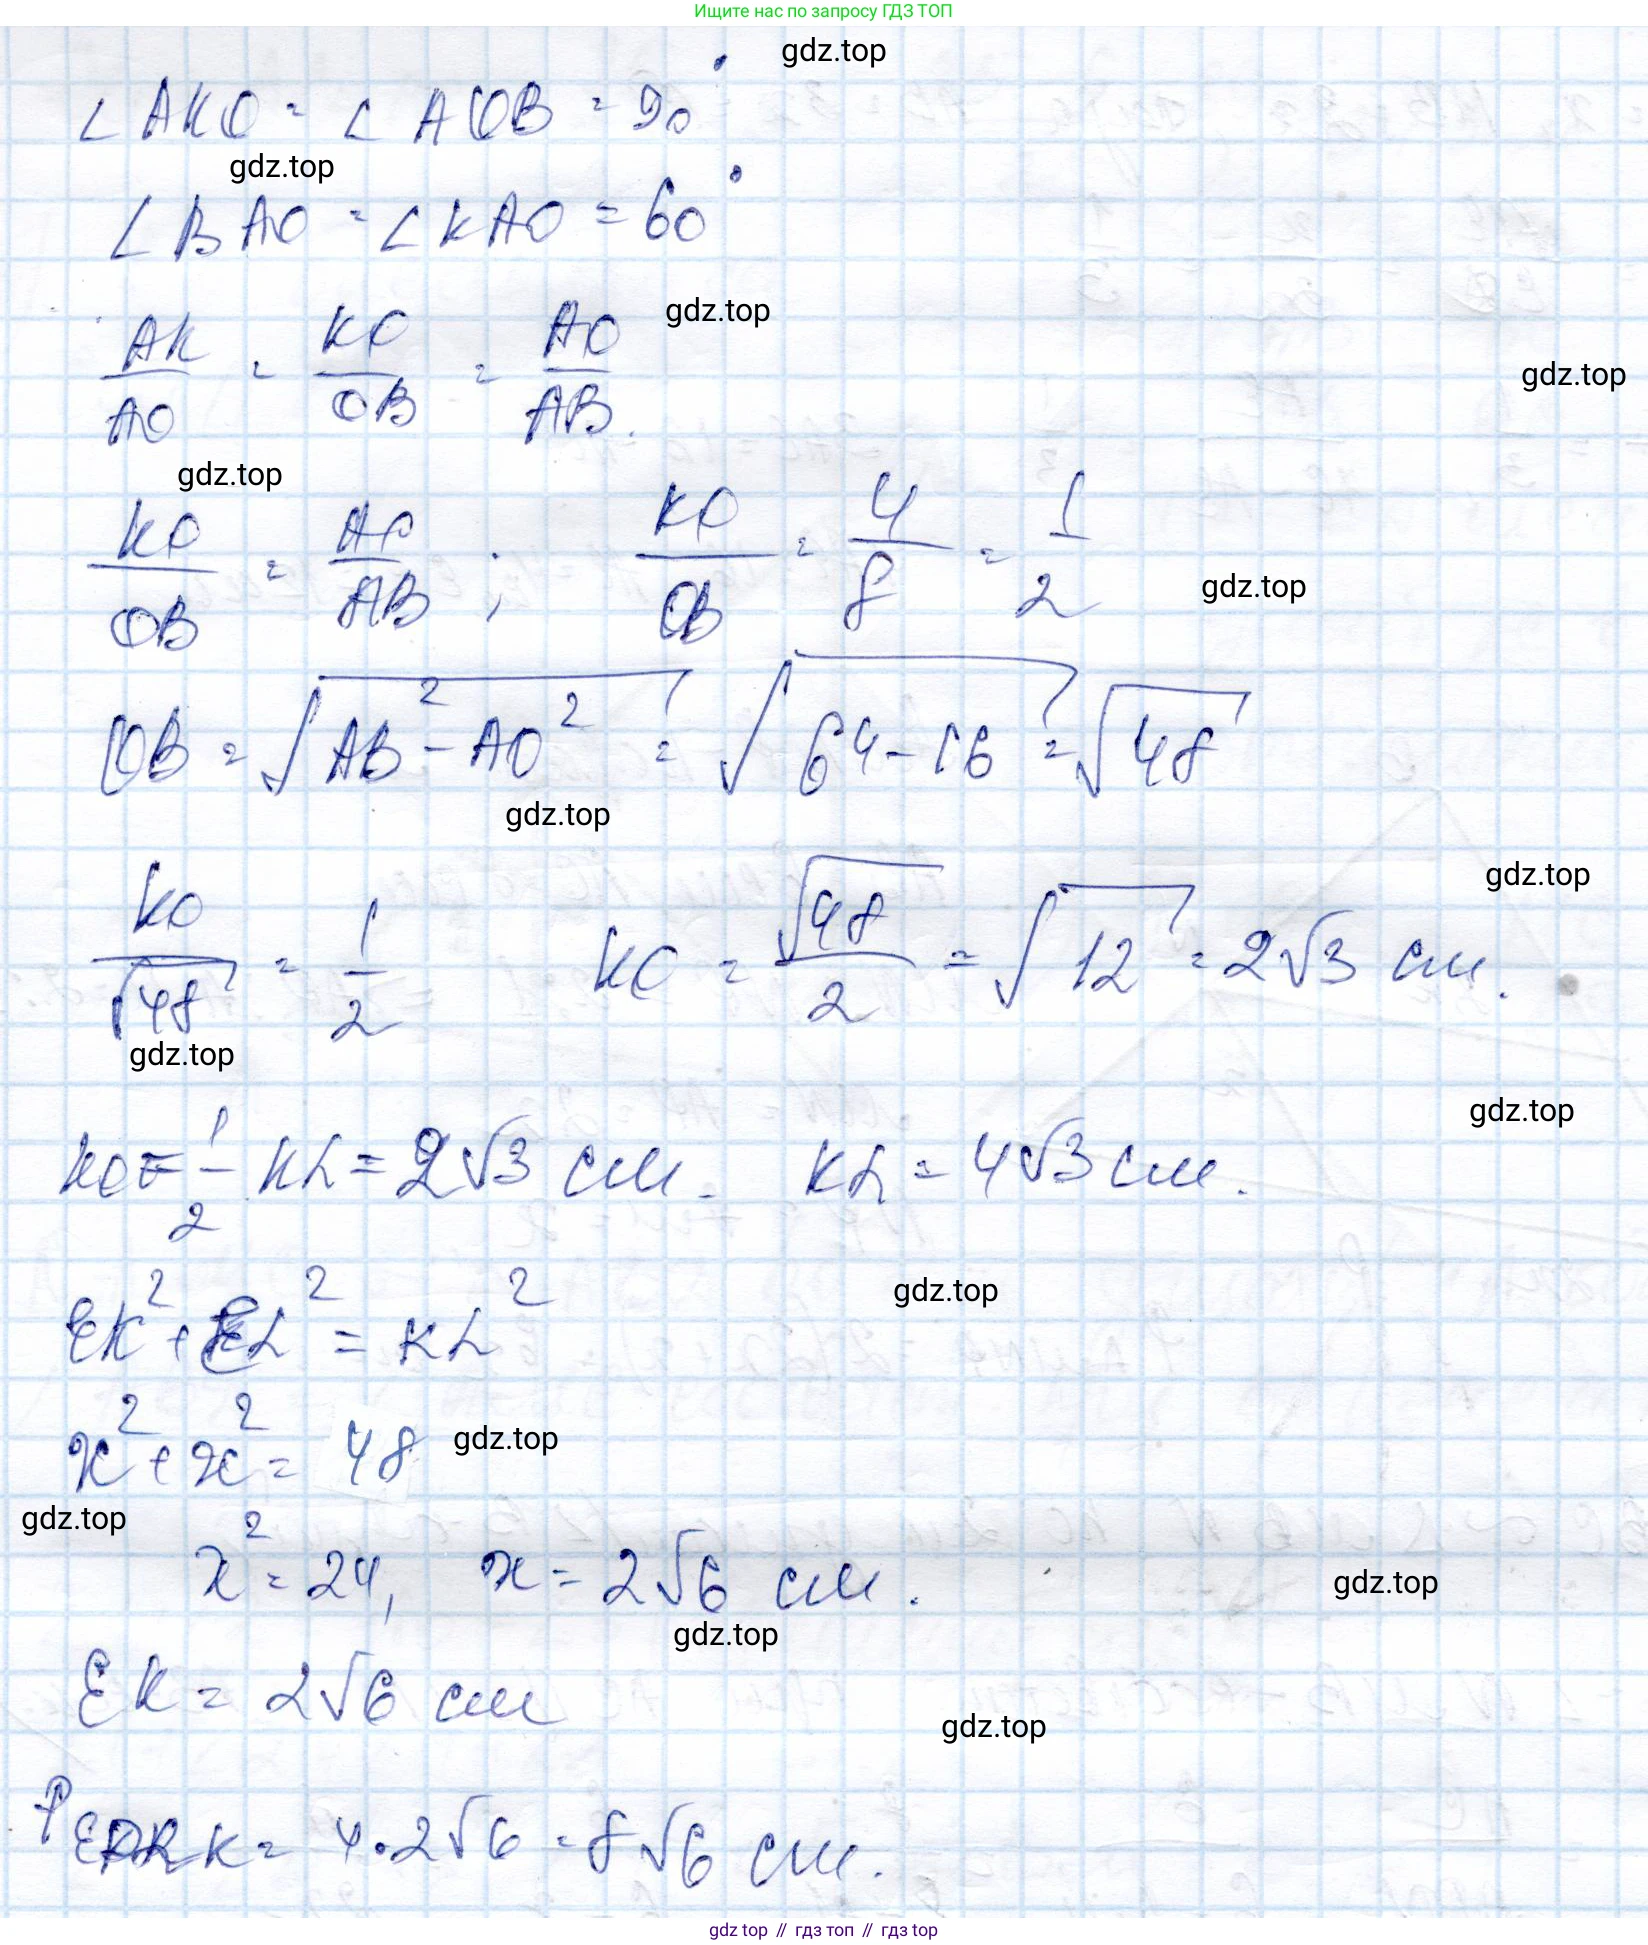 Ищите нас по запросу ГДЗ ТОП
gdz.top
∠AKO = ∠AOB = 90°
gdz.top
∠BAO = ∠KAO = 60°
gdz.top
AK/AO = KO/OB = AO/AB.
gdz.top
gdz.top
KO/OB = AO/AB ; KO/OB = 4/8 = 1/2
gdz.top
OB = √(AB² - AO²) = √(64-16) = √48
gdz.top
gdz.top
KO/√48 = 1/2 KO = √48/2 = √12 = 2√3 см.
gdz.top
gdz.top
KO = 1/2 KL = 2√3 см. KL = 4√3 см.
gdz.top
EK² + EL² = KL²
x² + x² = 48
gdz.top
gdz.top
x² = 24, x = 2√6 см.
gdz.top
gdz.top
EK = 2√6 см
gdz.top
K = 4·2√6 = 8√6 см.
gdz top // гдз топ // гдз top